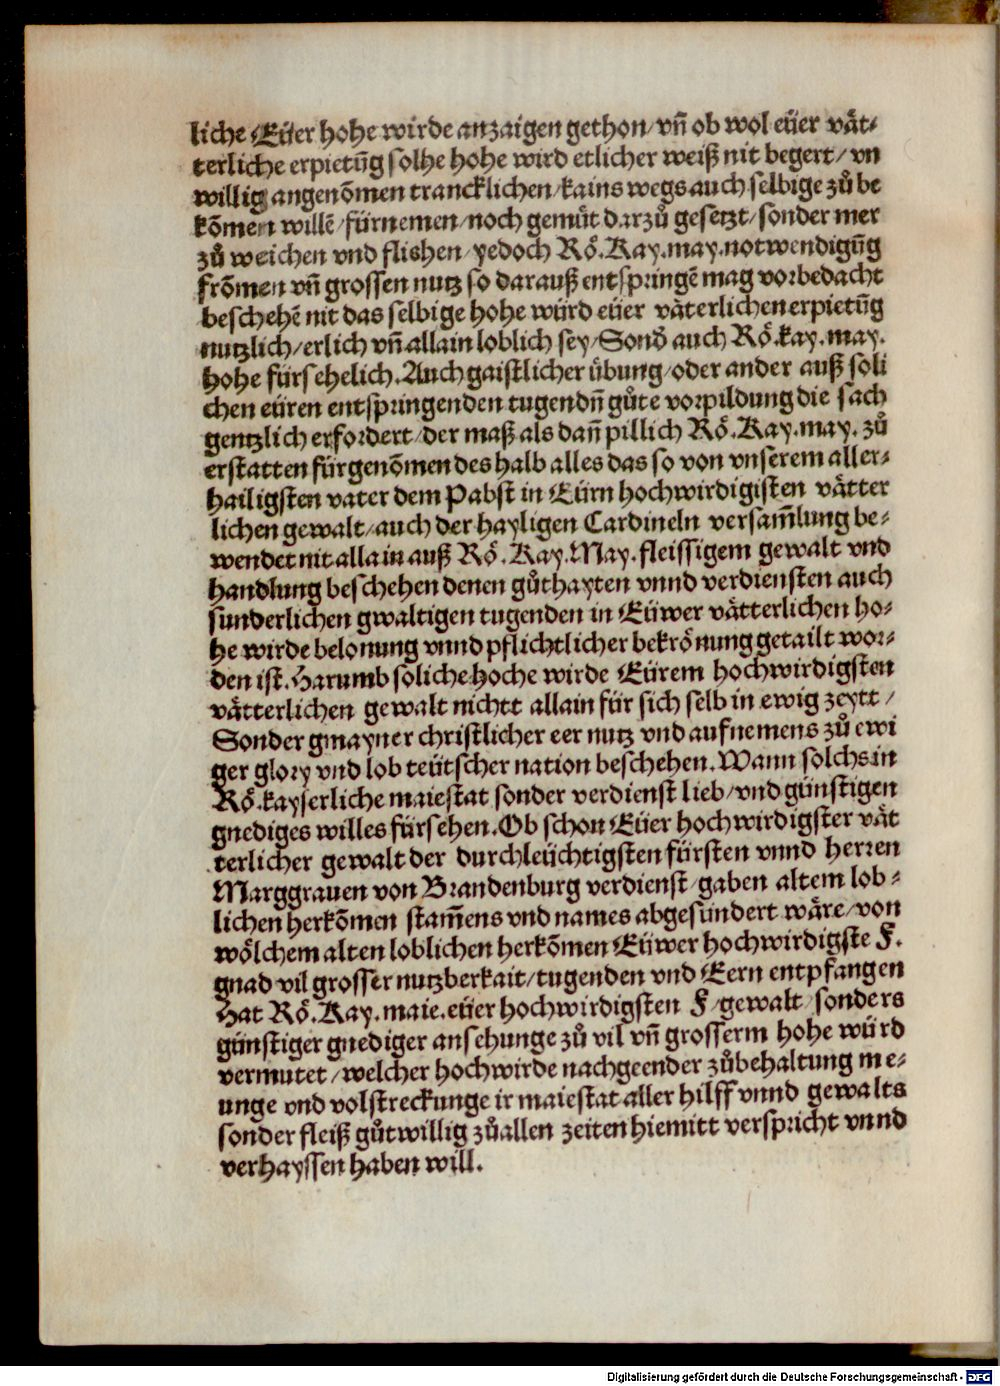 liche Eüer hohe wirde anzaigen gethon/vñ ob wol eüer vät⸗
terliche erpietũg solhe hohe wird etlicher weiß nit begert/vn
willig angenõmen trancklichen/kains wegs auch selbige zů be
kõmen willẽ/fürnemen/noch gemüt darzů gesetzt/sonder mer
zů weichen vnd flishen/yedoch Rö.Kay.may.notwendigũg
frõmen vñ grossen nutz so darauß entspringẽ mag vorbedacht
beschehẽ nit das selbige hohe würd eüer väterlichen erpietũg
nutzlich/erlich vñ allain loblich sey/Sond̕ auch Rö.kay.may.
hohe fürsehelich.Auch gaistlicher übung/oder ander auß soli
chen eüren entspringenden tugendñ gůte vorpildung die sach
gentzlich erfordert/der maß als dañ pillich Rö.Kay.may.zů
erstatten fürgenõmen des halb alles das so von vnserem aller⸗
hailigsten vater dem Pabst in Eürn hochwirdigisten vätter
lichen gewalt/auch der hayligen Cardineln versam̃lung be⸗
wendet nit allain auß Rö.Kay.May.fleissigem gewalt vnd
handlung beschehen denen gůthayten vnnd verdiensten auch
sunderlichen gwaltigen tugenden in Eüwer vätterlichen ho⸗
he wirde belonung vnnd pflichtlicher bekrönung getailt wor⸗
den ist.Harumb soliche hoche wirde Eürem hochwirdigsten
vätterlichen gewalt nichtt allain für sich selb in ewig zeytt/
Sonder gmayner christlicher eer nutz vnd aufnemens zů ewi
ger glory vnd lob teütscher nation beschehen.Wann solchs in
Rö.kayserliche maiestat sonder verdienst lieb/vnd günstigen
gnediges willes fürsehen.Ob schon Eüer hochwirdigster vät
terlicher gewalt der durchleüchtigsten fürsten vnnd herren
Marggrauen von Brandenburg verdienst/gaben altem lob⸗
lichen herkõmen stam̃ens vnd names abgesundert wäre/von
wölchem alten loblichen herkõmen Eüwer hochwirdigste F.
gnad vil grosser nutzberkait/tugenden vnd Eern entpfangen
Hat Rö.Kay.maie.eüer hochwirdigsten F/gewalt/sonders
günstiger gnediger ansehunge zů vil vñ grosserm hohe würd
vermutet/welcher hochwirde nachgeender zůbehaltung me⸗
unge vnd volstreckunge ir maiestat aller hilff vnnd gewalts
sonder fleiß gůtwillig zůallen zeiten hiemitt verspricht vnnd
verhayssen haben will.
Digitalisierung gefördert durch die Deutsche Forschungsgemeinschaft - DFG